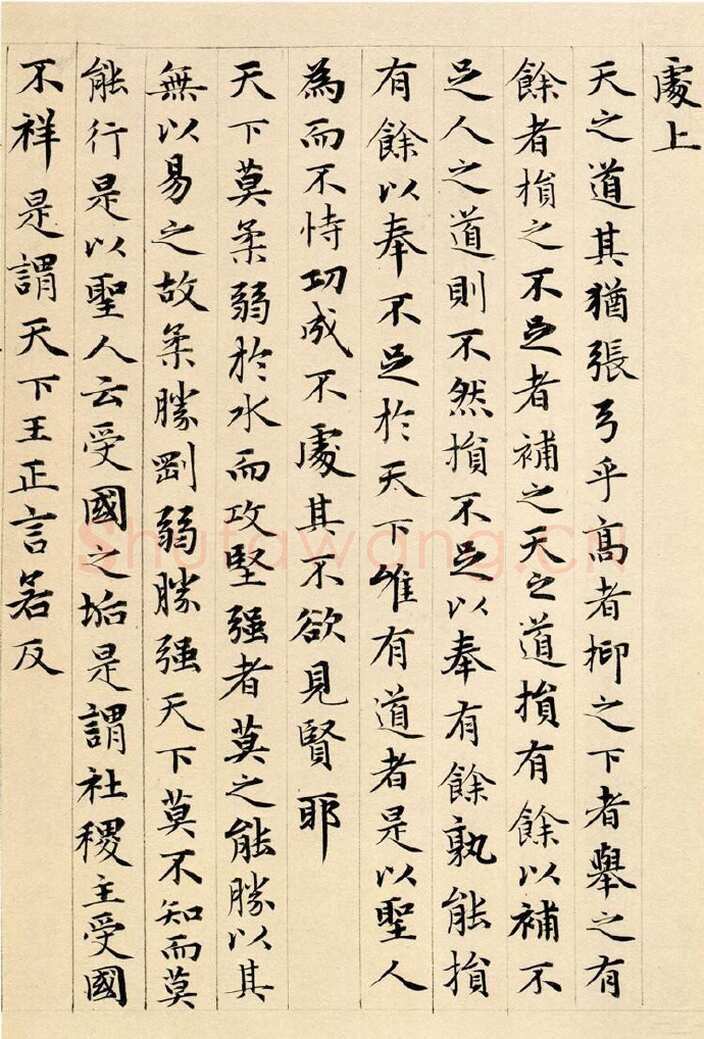 處上
天之道其猶張弓乎髙者抑之下者舉之有
餘者損之不足者補之天之道損有餘以補不
足人之道則不然損不足以奉有餘孰能損
有餘以奉不足於天下唯有道者是以聖人
為而不恃功成不處其不欲見賢耶
天下莫柔弱於水而攻堅强者莫之能勝以其
無以易之故柔勝剛弱勝强天下莫不知而莫
能行是以聖人云受國之垢是謂社稷主受國
不祥是謂天下王正言若反
Shufawang.cn